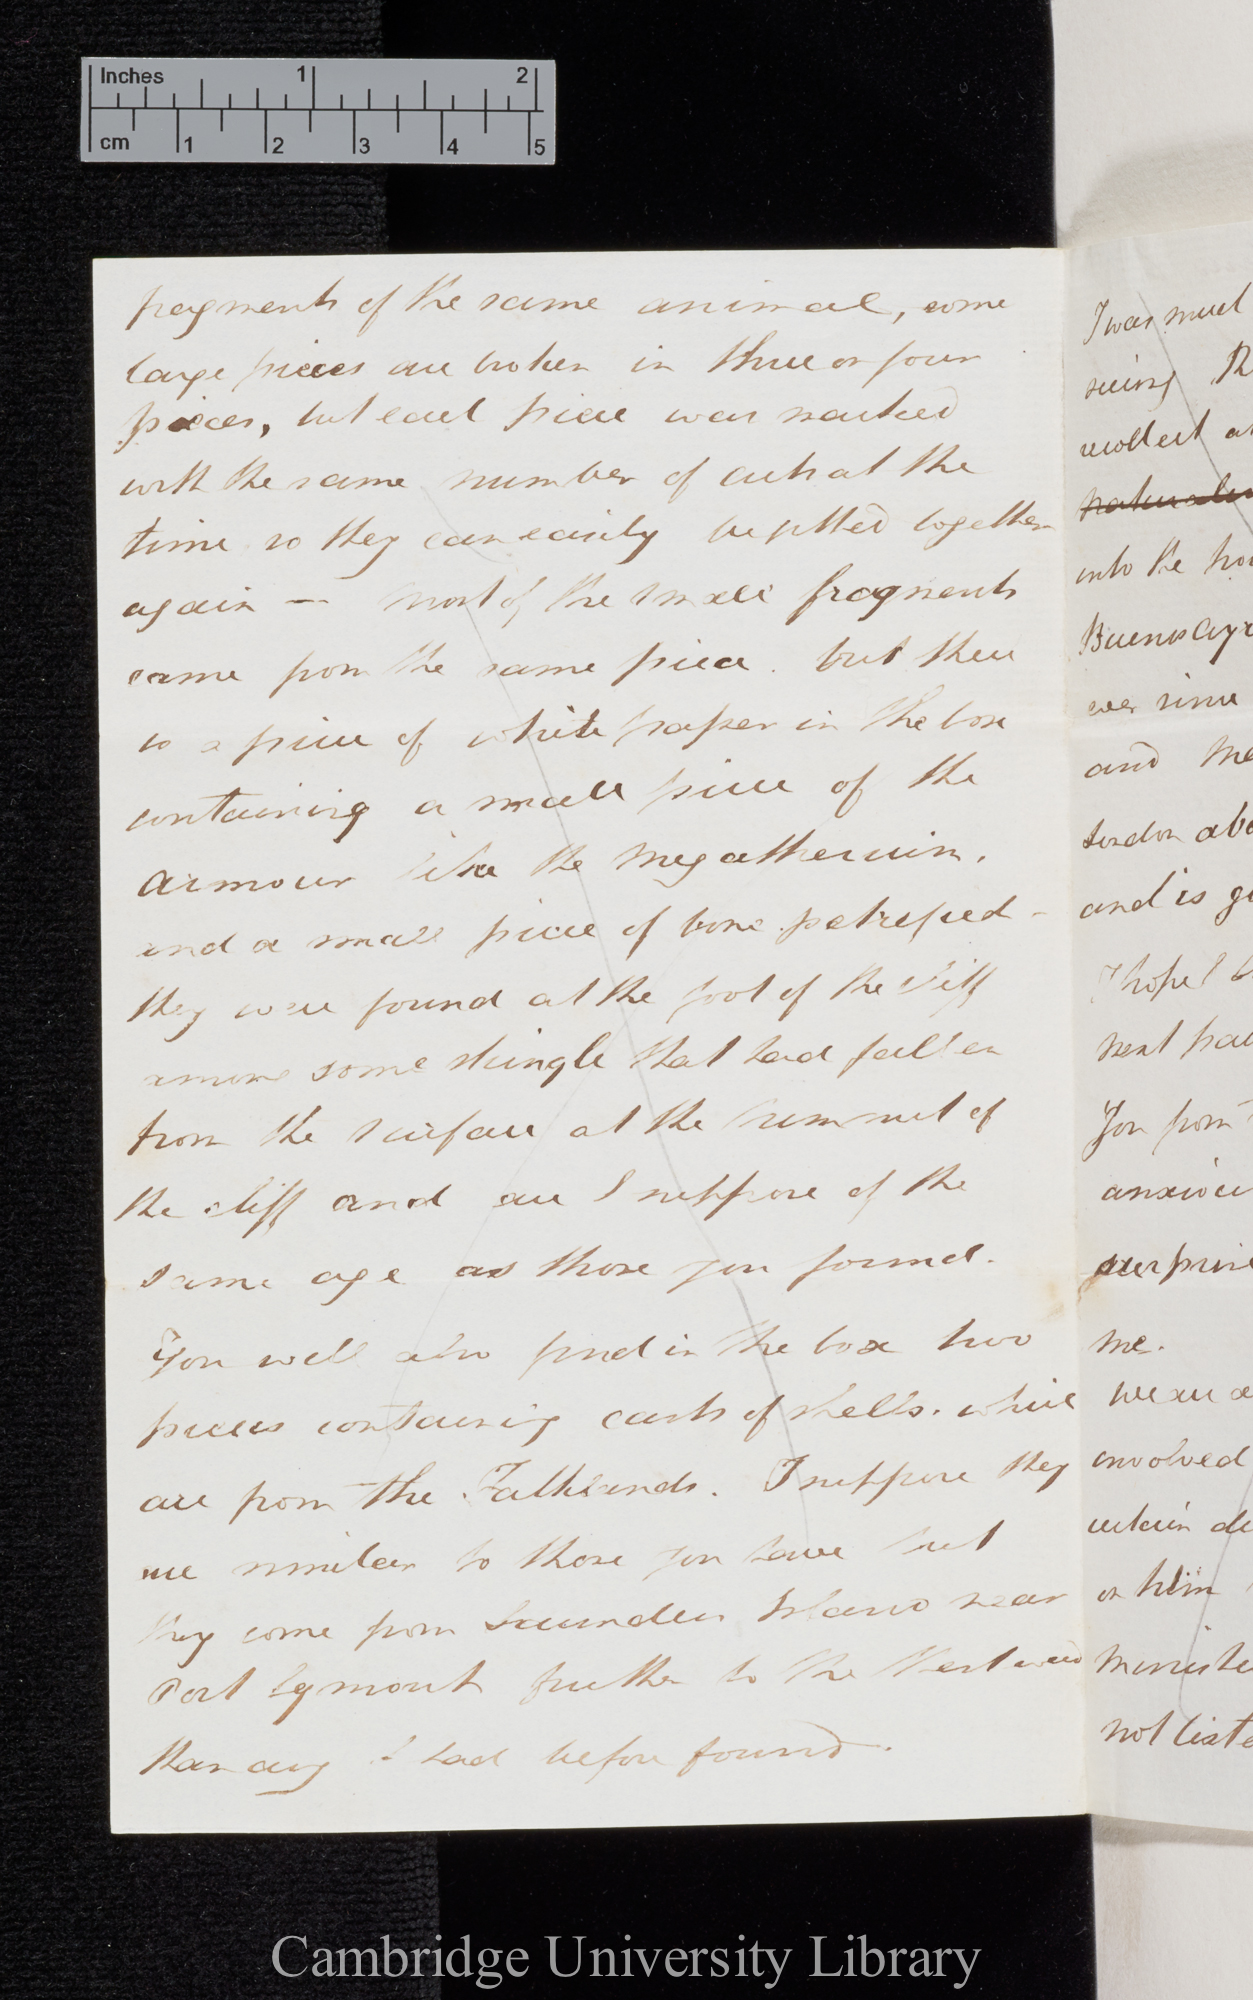 Inches 1 2
cm 1 2 3 4 5
fragments of the same animal, some
large pieces are broken in three or four
pieces, but each piece was marked
with the same number of cuts at the
time so they can easily be fitted together
again — Most of the small fragments
came from the same piece. but there
is a piece of white paper in the box
containing a small piece of the
armour like the Megatherium,
and a small piece of bone petrefied —
they were found at the foot of the cliff
among some shingle that had fallen
from the surface at the summit of
the cliff and are I suppose of the
same age as those you found.
You will also find in the box two
pieces containing casts of shells. which
are from the Falklands. I suppose they
are similar to those you have but
they come from Saunders Island near
Port Egmont further to the Westward
than any I had before found.
I was much
seeing
recollect
into the
Buenos Ayre
ever since
and
London abo
and is
I hope
next
You from
anxiou
surprise
me.
We are
involved
certain
or him
Ministe
not liste
Cambridge University Library